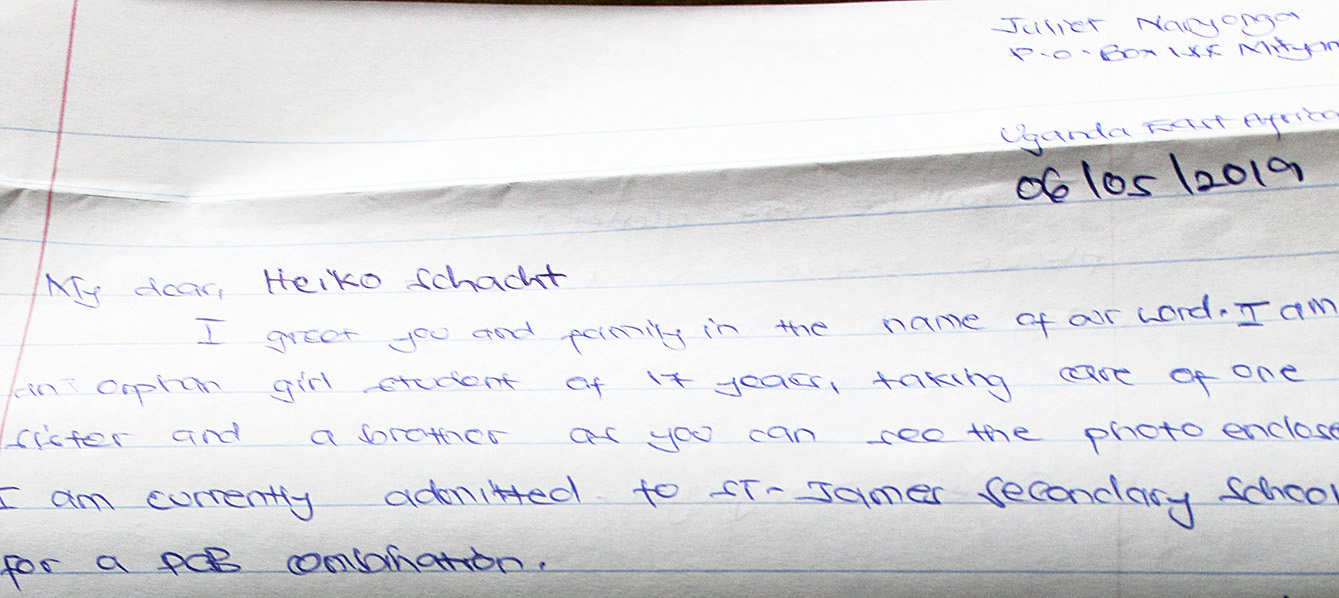 Juliet Nacyonga
P.O. Box 155 Mityan
Uganda East Africa
06/05/2019
My dear, Heiko Schacht
I greet you and family in the name of our Lord. I am
an orphan girl student of 17 years, taking care of one
sister and a brother as you can see the photo enclose
I am currently admitted to ST-James Secondary School
for a PCB combination.